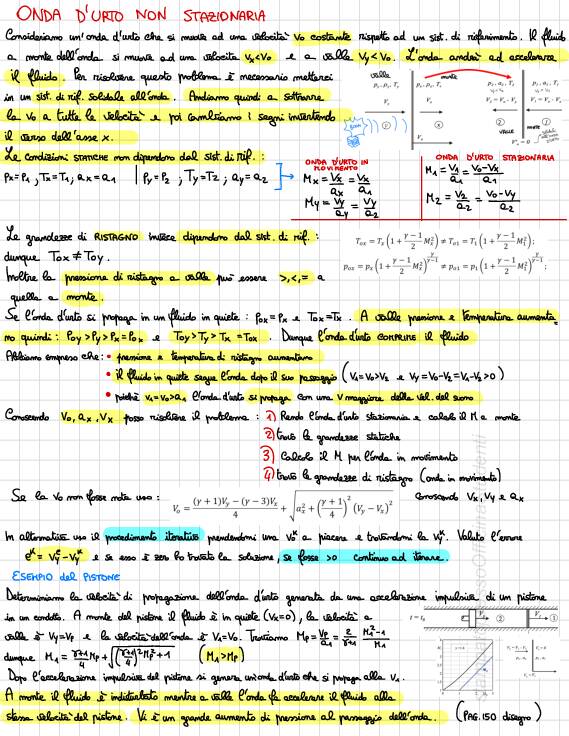 ONDA D'URTO NON STAZIONARIA
Consideriamo un'onda d'urto che si muove ad una velocità V0 costante rispetto ad un sist. di riferimento. Il fluido
a monte dell'onda si muove ad una velocità Vx<V0 e a valle Vy<V0. L'onda andrà ad accelerare
il fluido. Per risolvere questo problema è necessario metterci
in un sist. di rif. solidale all'onda. Andiamo quindi a sottrarre
la V0 a tutte le velocità e poi cambiamo i segni invertendo
il verso dell'asse x.
valle
monte
VALLE
MONTE
Le condizioni STATICHE non dipendono dal sist. di rif. :
Px = P1 ; Tx = T1 ; ax = a1 | Py = P2 ; Ty = T2 ; ay = a2
ONDA D'URTO IN MOVIMENTO
Mx = Vx/ax = Vx/a1
My = Vy/ay = Vy/a2
ONDA D'URTO STAZIONARIA
M1 = V1/a1 = (V0-Vx)/a1
M2 = V2/a2 = (V0-Vy)/a2
Le grandezze di RISTAGNO invece dipendono dal sist. di rif. :
dunque Tox ≠ Toy.
Inoltre la pressione di ristagno a valle può essere >,<,= a
quella a monte.
Tox = Tx (1 + (γ-1)/2 Mx²) ≠ To1 = T1 (1 + (γ-1)/2 M1²);
pox = px (1 + (γ-1)/2 Mx²)^(γ/(γ-1)) ≠ po1 = p1 (1 + (γ-1)/2 M1²)^(γ/(γ-1));
Se l'onda d'urto si propaga in un fluido in quiete : Pox = Px e Tox = Tx. A valle pressione e temperatura aumenta
no quindi : Poy > Py > Px = Pox e Toy > Ty > Tx = Tox. Dunque l'onda d'urto COMPRIME il fluido
Abbiamo empreso che : • pressione e temperatura di ristagno aumentano
• il fluido in quiete segue l'onda dopo il suo passaggio (V1=V0>V2 e Vy=V0-V2=V1-V2>0)
• poiché V1=V0>a1 l'onda d'urto si propaga con una V maggiore della vel. del suono
Conoscendo V0, ax, Vx posso risolvere il problema : 1) Rendo l'onda d'urto stazionaria e calcolo il M a monte
2) trovo le grandezze statiche
3) Calcolo il M per l'onda in movimento
4) trovo le grandezze di ristagno (onda in movimento)
Se la V0 non fosse nota uso :
V0 = ((γ+1)Vy - (γ-3)Vx)/4 + √(ax² + ((γ+1)/4)² (Vy - Vx)²)
Conoscendo Vx, Vy e ax
In alternativa uso il procedimento iterativo prendendomi una V0ᵏ a piacere e trovandomi la Vyᵏ. Valuto l'errore
eᵏ = Vyᵉ - Vyᵏ e se esso è zero ho trovato la soluzione, se fosse >0 continuo ad iterare.
ESEMPIO del PISTONE
Determiniamo la velocità di propagazione dell'onda d'urto generata da una accelerazione impulsiva di un pistone
in un condotto. A monte del pistone il fluido è in quiete (Vx=0), la velocità a
valle è Vy=Vp e la velocità dell'onda è V1=V0. Troviamo Mp = Vp/a1 = 2/(γ+1) (M1²-1)/M1
dunque M1 = (γ+1)/4 Mp + √(((γ+1)/4)² Mp² + 1) (M1>Mp)
Dopo l'accelerazione impulsiva del pistone si genera un'onda d'urto che si propaga alla V1.
A monte il fluido è indisturbato mentre a valle l'onda fa accelerare il fluido alla
stessa velocità del pistone. Vi è un grande aumento di pressione al passaggio dell'onda. (PAG. 150 disegno)